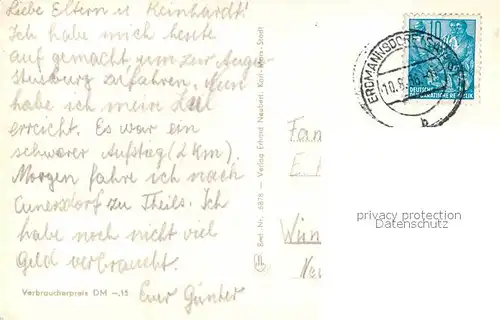 Liebe Eltern u. Reinhardt!
Ich habe mich heute
auf gemacht um zur Augu-
stusburg zufahren. Nun
habe ich mein Ziel
erreicht. Es war ein
schwerer Aufstieg (2 km).
Morgen fahre ich nach
Cunersdorf zu Theils. Ich
habe noch nicht viel
Geld verbraucht.
Euer Günter
Verbraucherpreis DM -,15
Best.-Nr. 5878 - Verlag Erhard Neubert, Karl-Marx-Stadt
ERDMANNSDORF
10.8.
b
10
DEUTSCHE
DEMOKRATISCHE REPUBLIK
Fam
E.
privacy protection
AnsichtskartenVersand.com